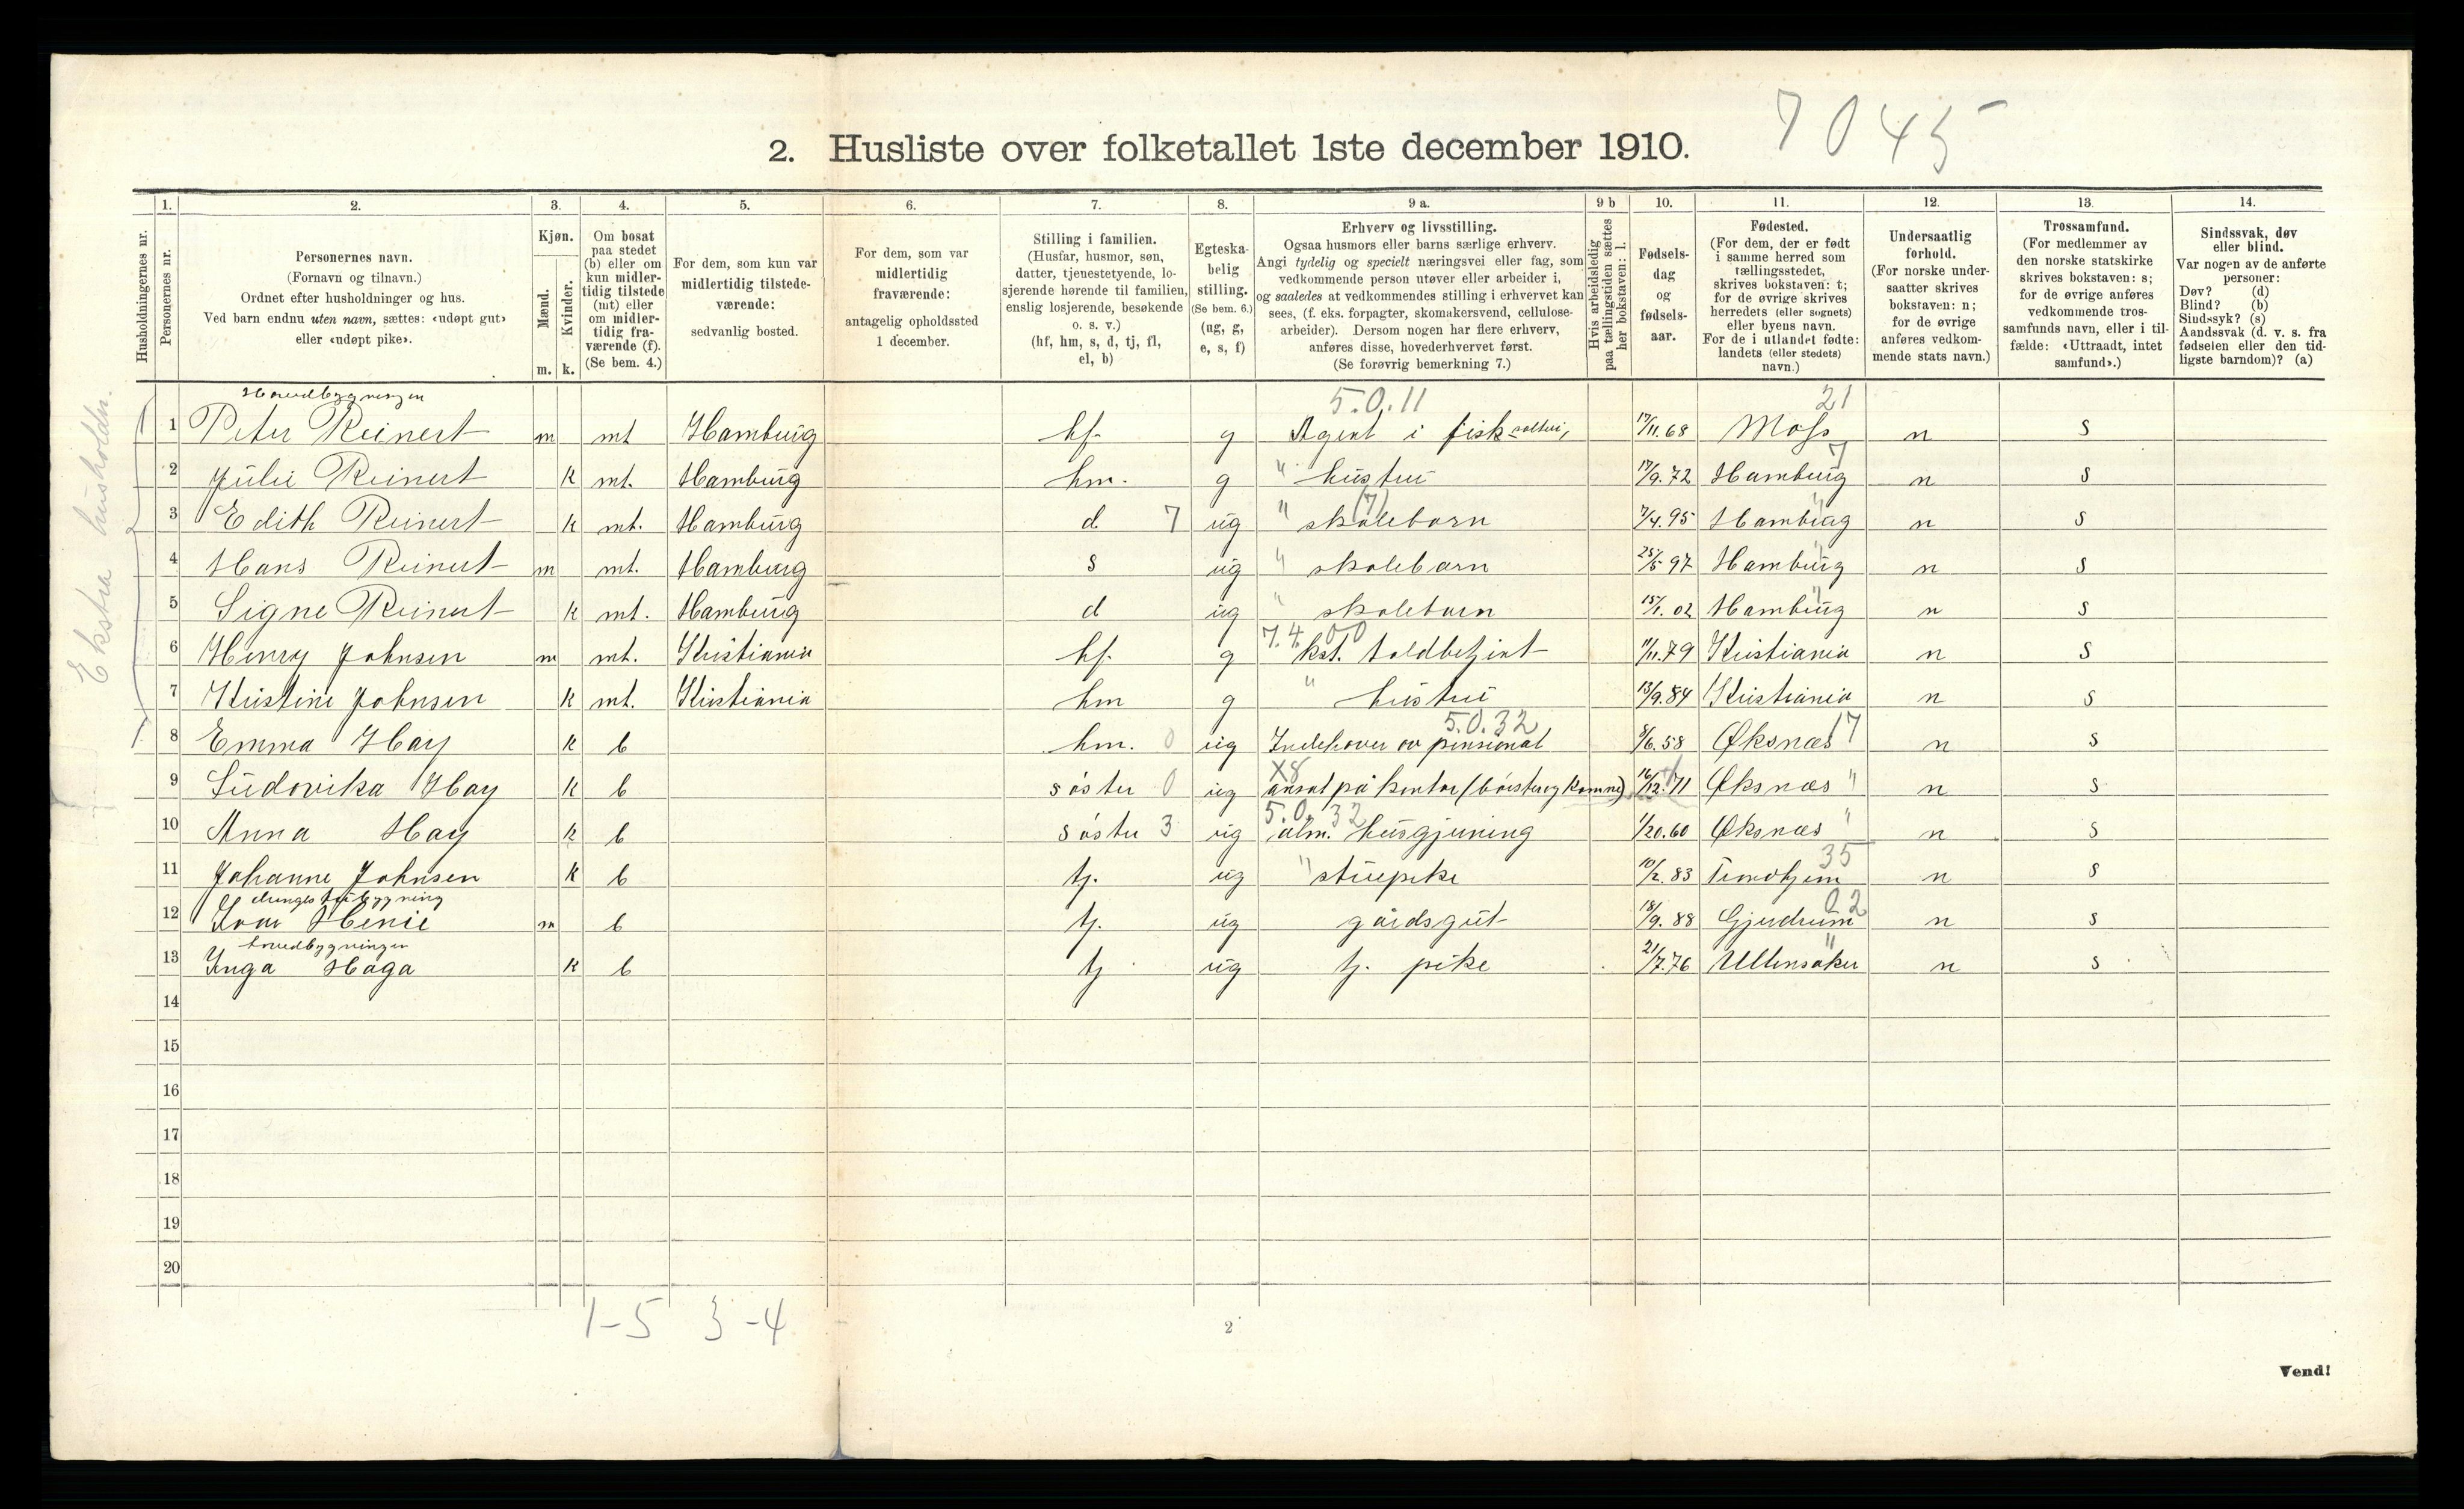 7045
2. Husliste over folketallet 1ste december 1910.
1. 2. 3. 4. 5. 6. 7. 8. 9 a. 9 b 10. 11. 12. 13. 14.
Husholdningernes nr.
Personernes nr.
Personernes navn.
(Fornavn og tilnavn.)
Ordnet efter husholdninger og hus.
Ved barn endnu uten navn, sættes: «udøpt gut»
eller «udøpt pike».
Kjøn.
Mænd.
Kvinder.
m. k.
Om bosat
paa stedet
(b) eller om
kun midler-
tidig tilstede
(mt) eller
om midler-
tidig fra-
værende (f).
(Se bem. 4.)
For dem, som kun var
midlertidig tilstede-
værende:
sedvanlig bosted.
For dem, som var
midlertidig
fraværende:
antagelig opholdssted
1 december.
Stilling i familien.
(Husfar, husmor, søn,
datter, tjenestetyende, lo-
sjerende hørende til familien,
enslig losjerende, besøkende
o. s. v.)
(hf, hm, s, d, tj, fl,
el, b)
Egteska-
belig
stilling.
(Se bem. 6.)
(ug, g,
e, s, f)
Erhverv og livsstilling.
Ogsaa husmors eller barns særlige erhverv.
Angi tydelig og specielt næringsvei eller fag, som
vedkommende person utøver eller arbeider i,
og saaledes at vedkommendes stilling i erhvervet kan
sees, (f. eks. forpagter, skomakersvend, cellulose-
arbeider). Dersom nogen har flere erhverv,
anføres disse, hovederhvervet først.
(Se forøvrig bemerkning 7.)
Hvis arbeidsledig
paa tællingstiden sættes
her bokstaven: l.
Fødsels-
dag
og
fødsels-
aar.
Fødested.
(For dem, der er født
i samme herred som
tællingsstedet,
skrives bokstaven: t;
for de øvrige skrives
herredets (eller sognets)
eller byens navn.
For de i utlandet fødte:
landets (eller stedets)
navn.)
Undersaatlig
forhold.
(For norske under-
saatter skrives
bokstaven: n;
for de øvrige
anføres vedkom-
mende stats navn.)
Trossamfund.
(For medlemmer av
den norske statskirke
skrives bokstaven: s;
for de øvrige anføres
vedkommende tros-
samfunds navn, eller i til-
fælde: «Uttraadt, intet
samfund».)
Sindssvak, døv
eller blind.
Var nogen av de anførte
personer:
Døv? (d)
Blind? (b)
Sindssyk? (s)
Aandssvak (d. v. s. fra
fødselen eller den tid-
ligste barndom)? (a)
Ekstra husholdn.
Hovedbygningen 5.0.11 21
1 Peter Reinert m mt Hamburg hf. g Agent i fisk 17/11.68 Moss n s
7
2 Julie Reinert k mt. Hamburg hm. g " hustru 17/9.72 Hamburg n s
(7) "
3 Edith Reinert k mt. Hamburg d 7 ug " skolebarn 7/4.95 Hamburg n s
4 Hans Reinert m mt. Hamburg s ug " skolebarn 25/5 97 Hamburg " n s
5 Signe Reinert k mt. Hamburg d ug " skolebarn 15/1. 02 Hamburg " n s
7.4.00
6 Henry Johnsen m mt. Kristiania hf. g kst. toldbetjent 11/11.79 Kristiania n s
7 Kristine Johnsen k mt. Kristiania hm g " hustru 13/9.84 Kristiania n s
5.0.32
8 Emma Hay k b hm. 0 ug Indehaver av pensionat 5/6.58 Øksnæs 17 n s
x8
9 Ludovika Hay k b søster 0 ug ansat på kontor (børster og kamme) 16/12.71 Øksnæs " n s
5.0.32
10 Anna Hay k b søster 3 ug alm. husgjerning 1/20.60 Øksnæs " n s
35
11 Johanne Johnsen k b tj. ug " stuepike 10/2.83 Trondhjem n s
drengestubygning 02
12 Ivar Henie m b tj. ug gårdsgut 18/9.88 Gjerdrum n s
hovedbygningen "
13 Inga Haga k b tj ug tj. pike 21/7.76 Ullensaker n s
14
15
16
17
18
19
20
1-5 3-4
2
Vend!